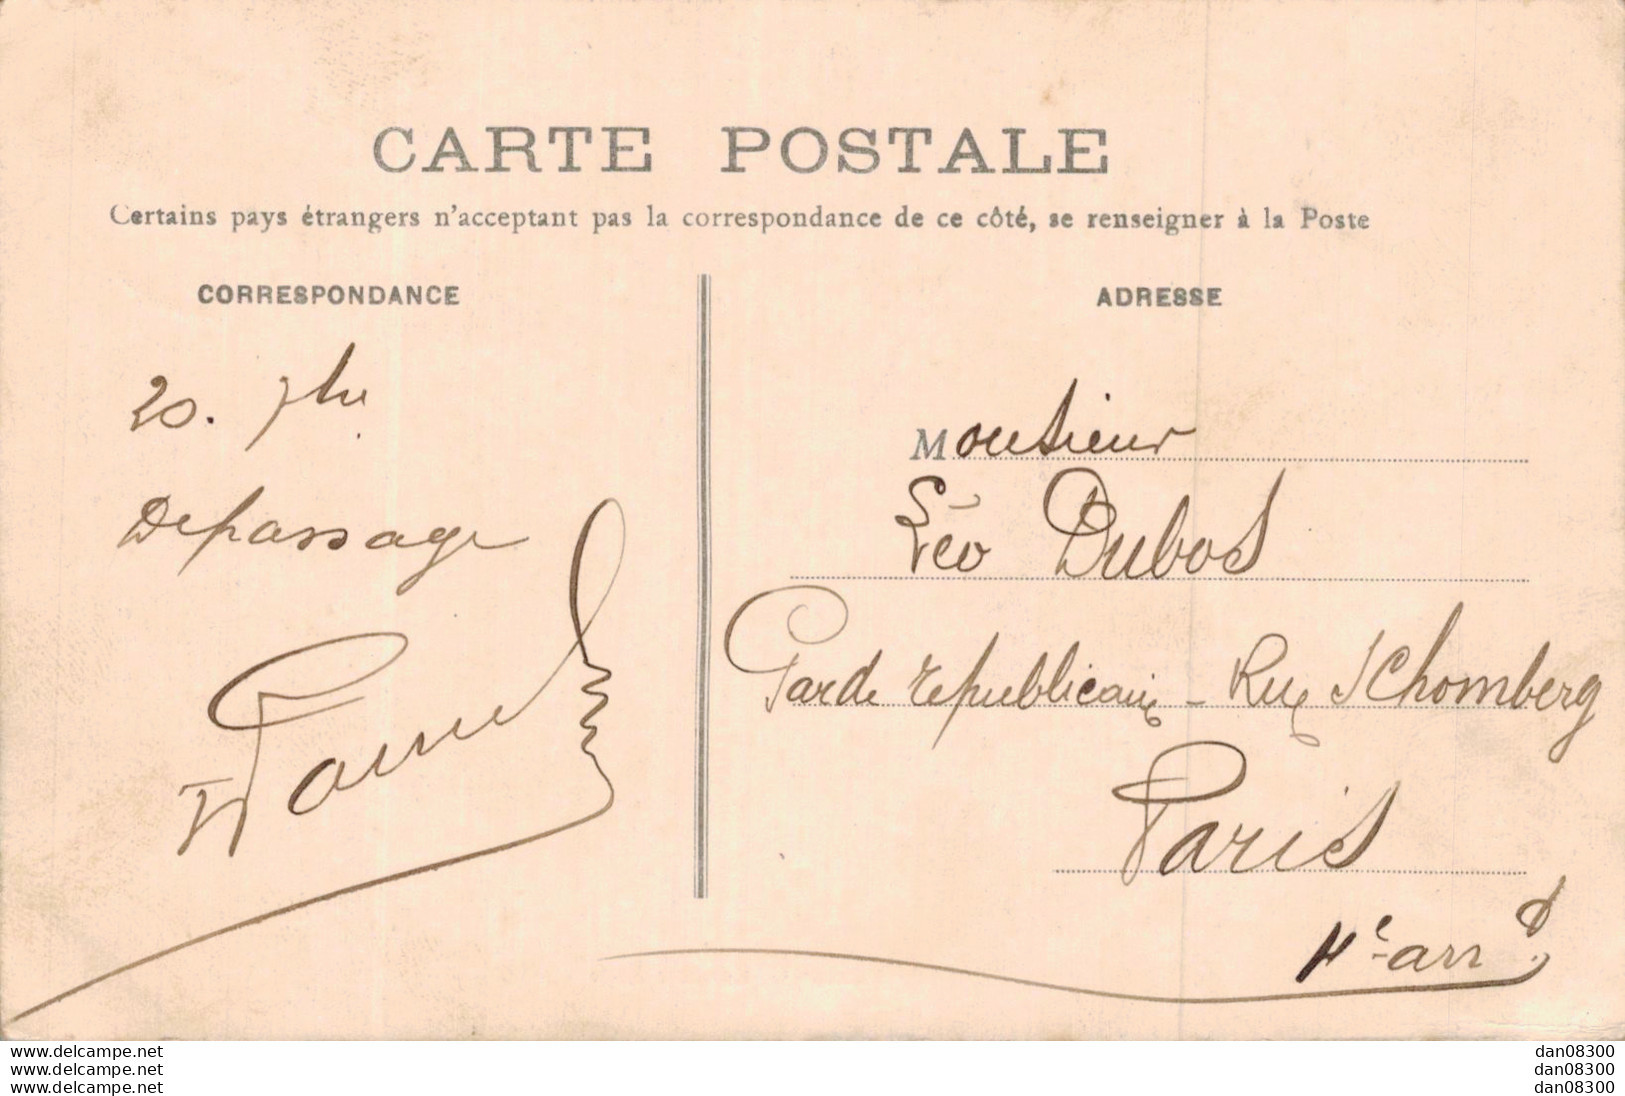 CARTE POSTALE
Certains pays étrangers n'acceptant pas la correspondance de ce côté, se renseigner à la Poste
CORRESPONDANCE
20. 7bre
Depassage
ADRESSE
Monsieur
Léo Dubos
Garde républicaine - Rue Schomberg
Paris
4e arrd.
www.delcampe.net
www.delcampe.net
www.delcampe.net
dan08300
dan08300
dan08300